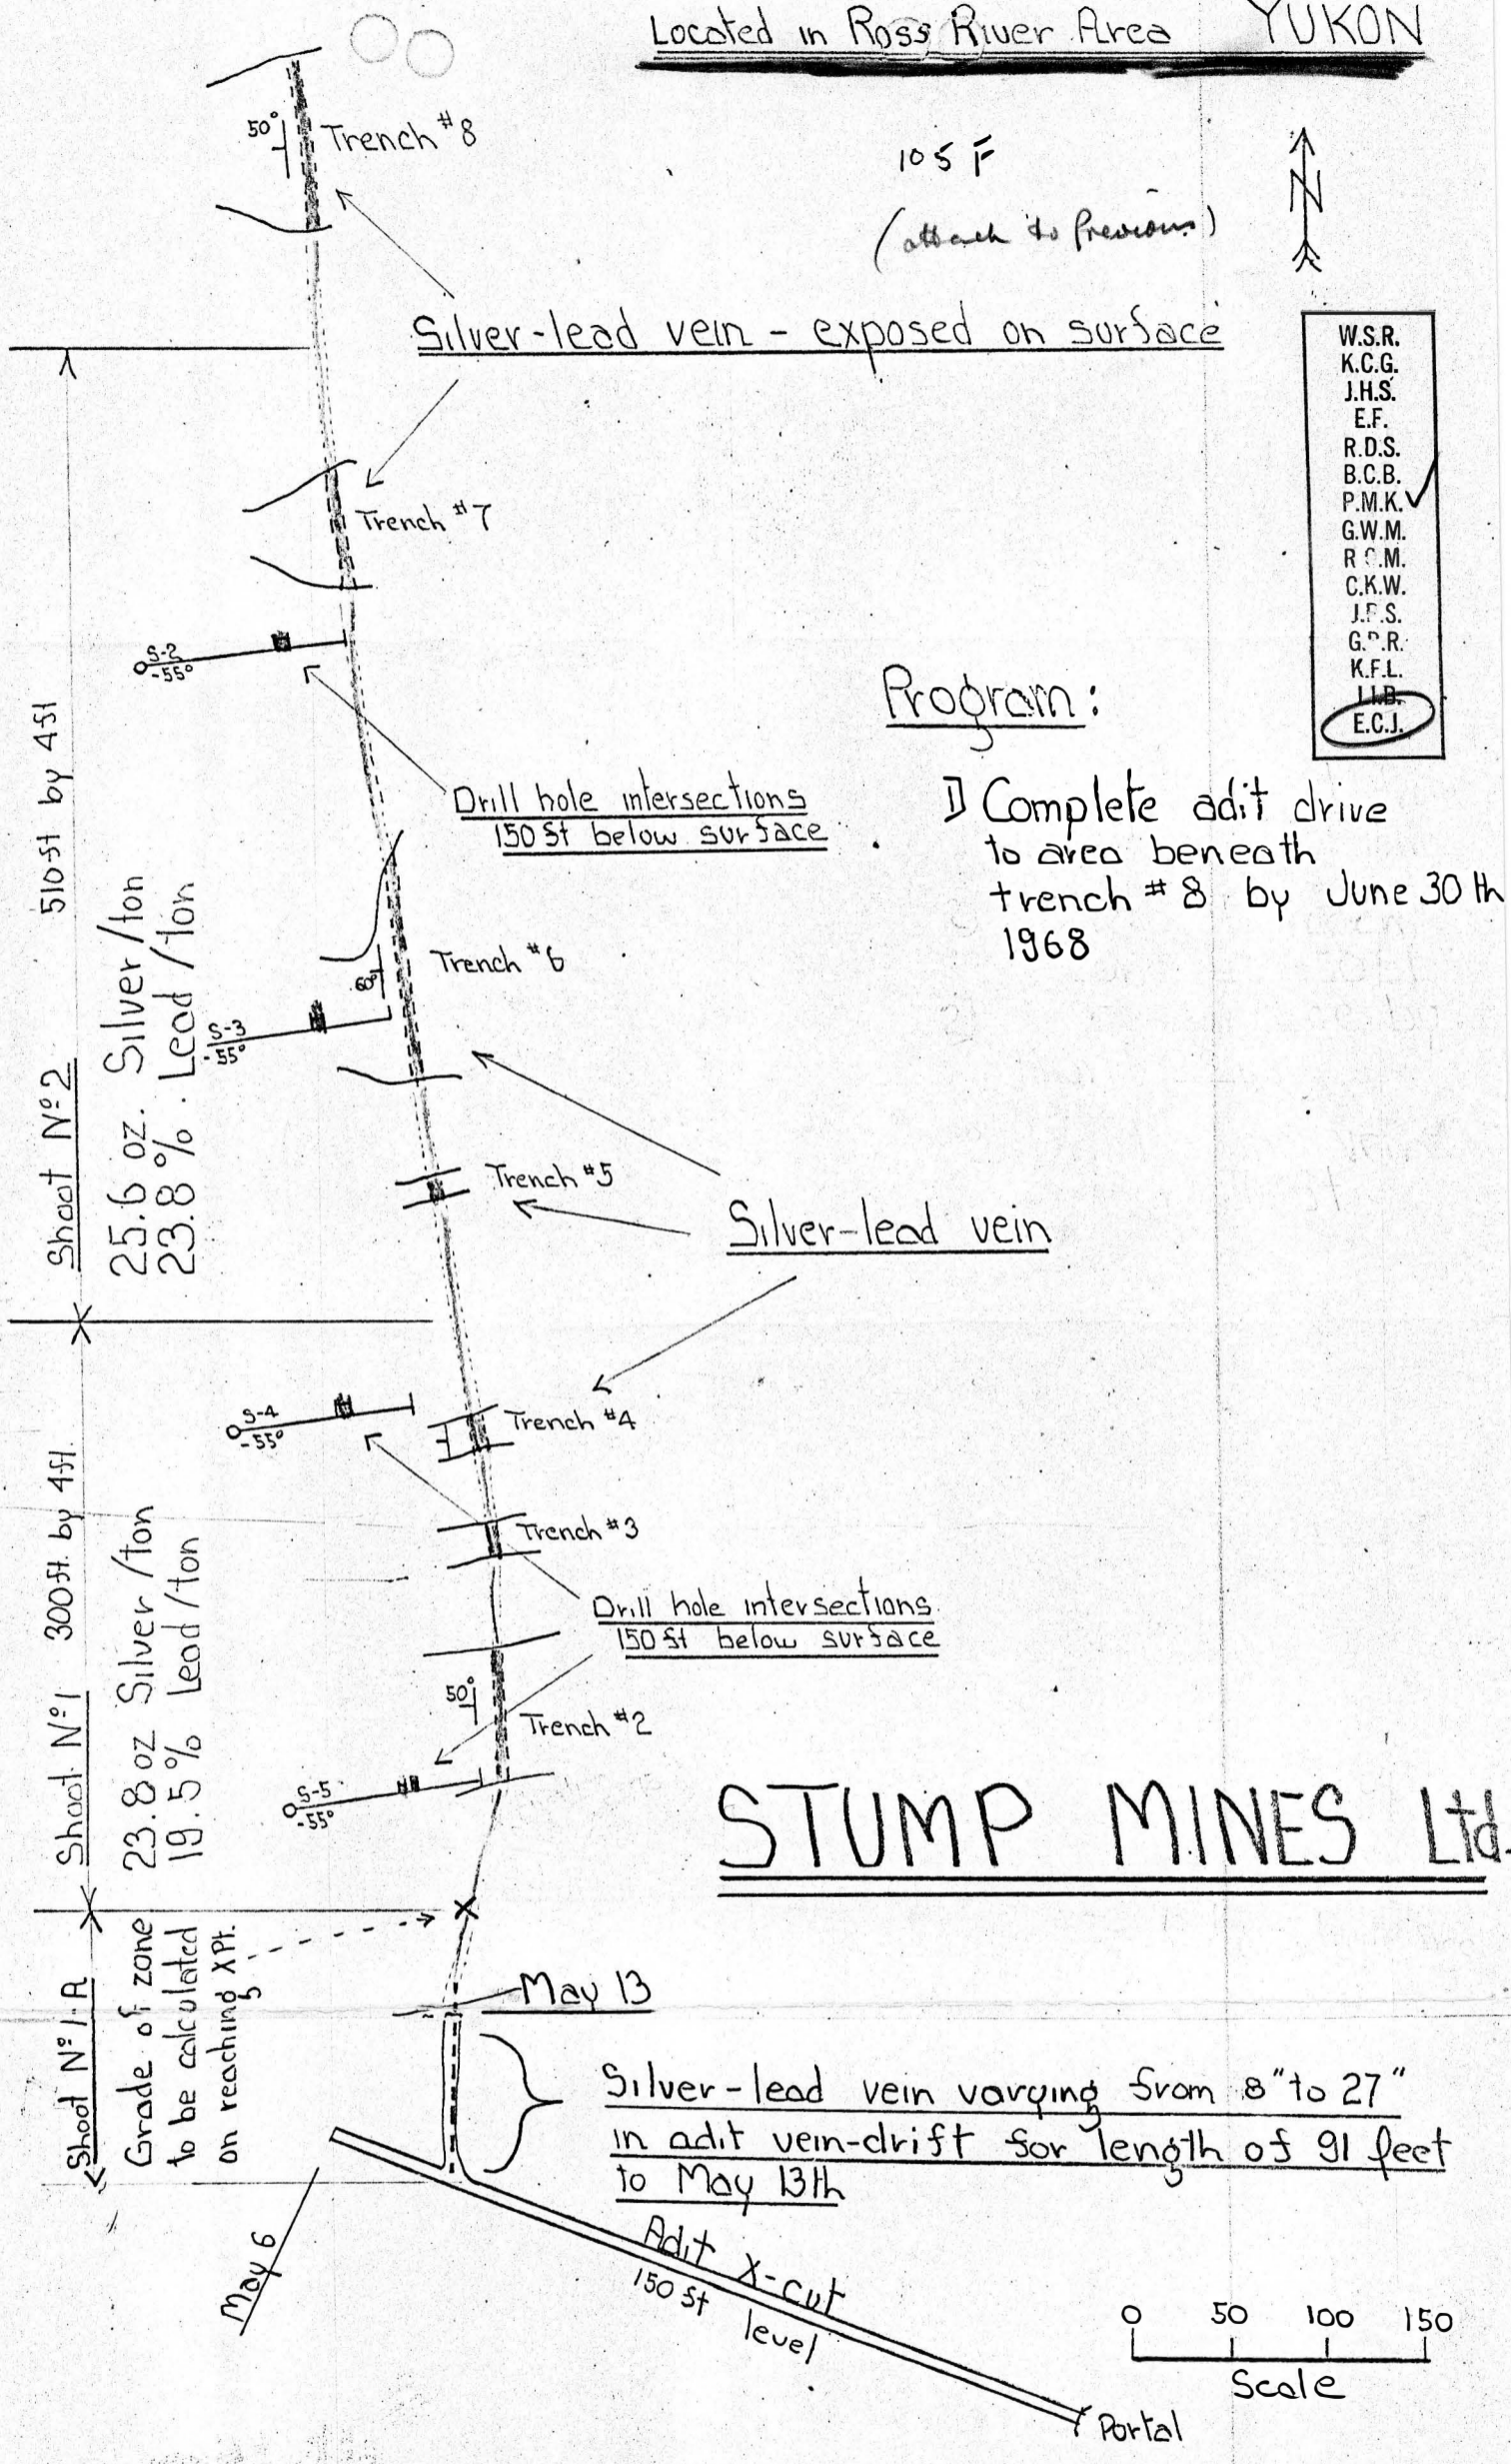 Located in Ross River Area YUKON
105 F
(attach to Previous)
N
50°
Trench #8
Silver-lead vein - exposed on surface
W.S.R.
K.C.G.
J.H.S.
E.F.
R.D.S.
B.C.B.
P.M.K.
G.W.M.
C.K.W.
K.F.L.
E.C.J.
Trench #7
S-2
-55°
Drill hole intersections
150 ft below surface
Program:
1) Complete adit drive
to area beneath
trench #8 by June 30th
1968
Shoot Nº2 510ft by 4ft
25.6 oz. Silver/ton
23.8 %. Lead/ton
Trench #6
60°
S-3
-55°
Trench #5
Silver-lead vein
S-4
-55°
Trench #4
Trench #3
Shoot Nº1 300ft. by 4ft.
23.8 oz Silver/ton
19.5% Lead/ton
Drill hole intersections
150 ft below surface
50°
Trench #2
S-5
-55°
STUMP MINES Ltd.
Shoot Nº1-A
Grade of zone
to be calculated
on reaching X Pt.
X
May 13
Silver-lead vein varying from 8" to 27"
in adit vein-drift for length of 91 feet
to May 13th
May 6
Adit X-cut
150 ft level
Portal
0 50 100 150
Scale